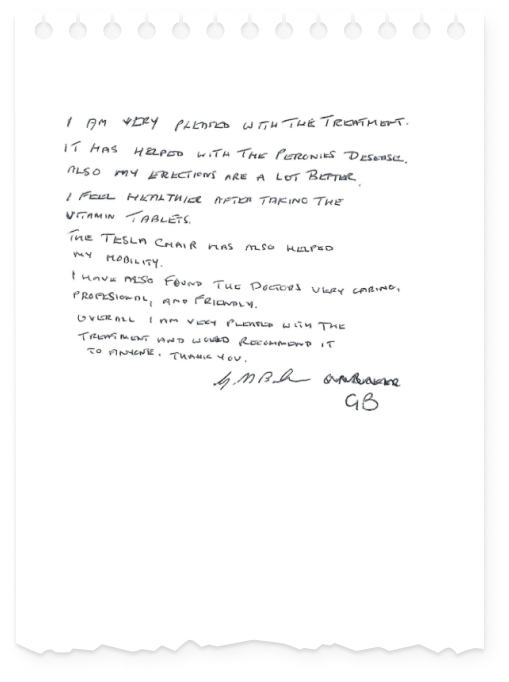 I AM VERY PLEASED WITH THE TREATMENT.
IT HAS HELPED WITH THE PERONIES DESEASE.
ALSO MY ERECTIONS ARE A LOT BETTER.
I FEEL HEALTHIER AFTER TAKING THE
VITAMIN TABLETS.
THE TESLA CHAIR HAS ALSO HELPED
MY MOBILITY.
I HAVE ALSO FOUND THE DOCTORS VERY CARING,
PROFESIONAL, AND FRIENDLY.
OVERALL I AM VERY PLEASED WITH THE
TREATMENT AND WOULD RECOMMEND IT
TO ANYONE. THANK YOU.
GB